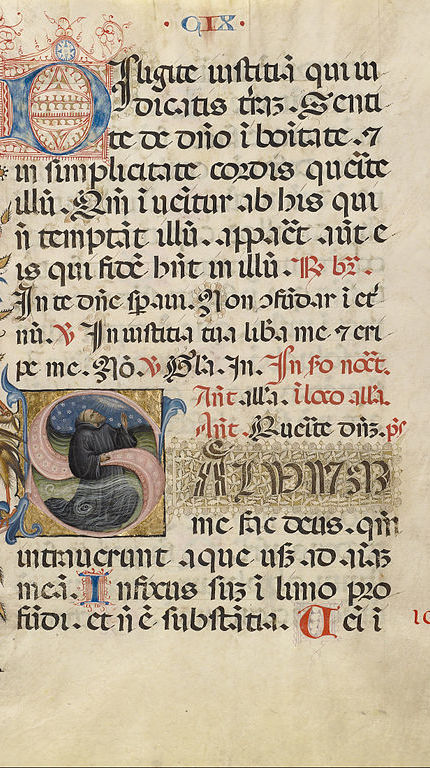 · CIX ·
Diligite iustitiā qui iu
dicatis t̄rā3. Senti
te de dn̄o ī boītate. ⁊
in simplicitate cordis querite
illū. Qm̄ īuēitur ab his qui
n̄ temptāt illū. apparēt aut̄ e
is qui fidē hn̄t in illū. R. br̄.
In te dn̄e sp̄aui. Non ↄfūdar ī et̄
nū. V In iustitia tua lib̄a me ⁊ eri
pe me. Nō. V Gl̄a. In. In s̄o noct̄.
Ant̄ all̄a. ī loco all̄a.
Ant. dn̄s. ps̄
SALVUM
me fac deus. qm̄
intrauerunt aque usq3 ad aīa3
meā. Infixus su3 ī limo pro
fūdi. et n̄ ē substātia. Ueī ī